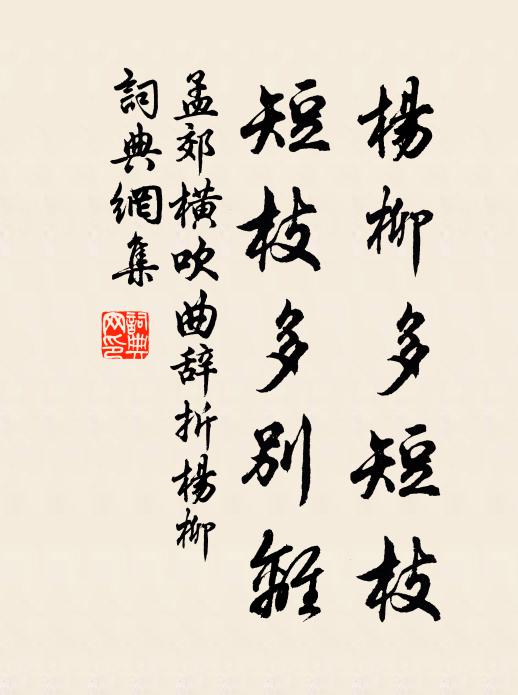 楊柳多短枝
短枝多別離
孟郊橫吹曲辞折楊柳
詞典網集
詞典網印